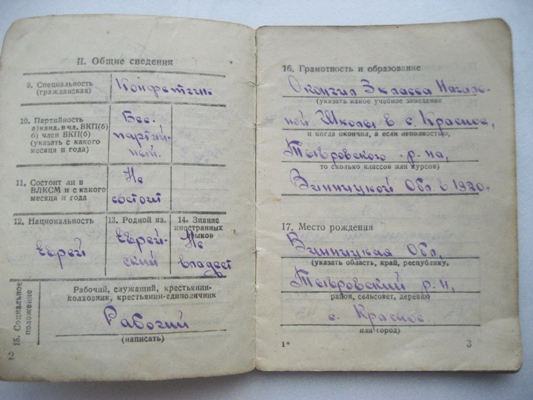 II. Общие сведения
9. Специальность
(гражданская)
Конфетчик
10. Партийность
и канд. в чл. ВКП(б)
б) член ВКП(б)
(указать с какого
месяца и года)
Бес-
партий-
ный.
11. Состоит ли в
ВЛКСМ и с какого
месяца и года
Не
состоит
12. Национальность
Еврей
13. Родной яз.
Еврей-
ский
14. Знание
иностранных
языков
Не
владеет
15. Социальное
положение
Рабочий, служащий, крестьянин-
колхозник, крестьянин-единоличник
Рабочий
(написать)
2
16. Грамотность и образование
Окончил 3 класса Началь-
(указать какое учебное заведение
ной Школы в с. Красное,
и когда окончил, а если неполностью,
Тывровского р-на,
то сколько классов или курсов)
Винницкой Обл в 1930.
17. Место рождения
Винницкая Обл,
(указать область, край, республику,
Тывровский р-н,
район, сельсовет, деревню
с. Красное.
или город)
1*
3